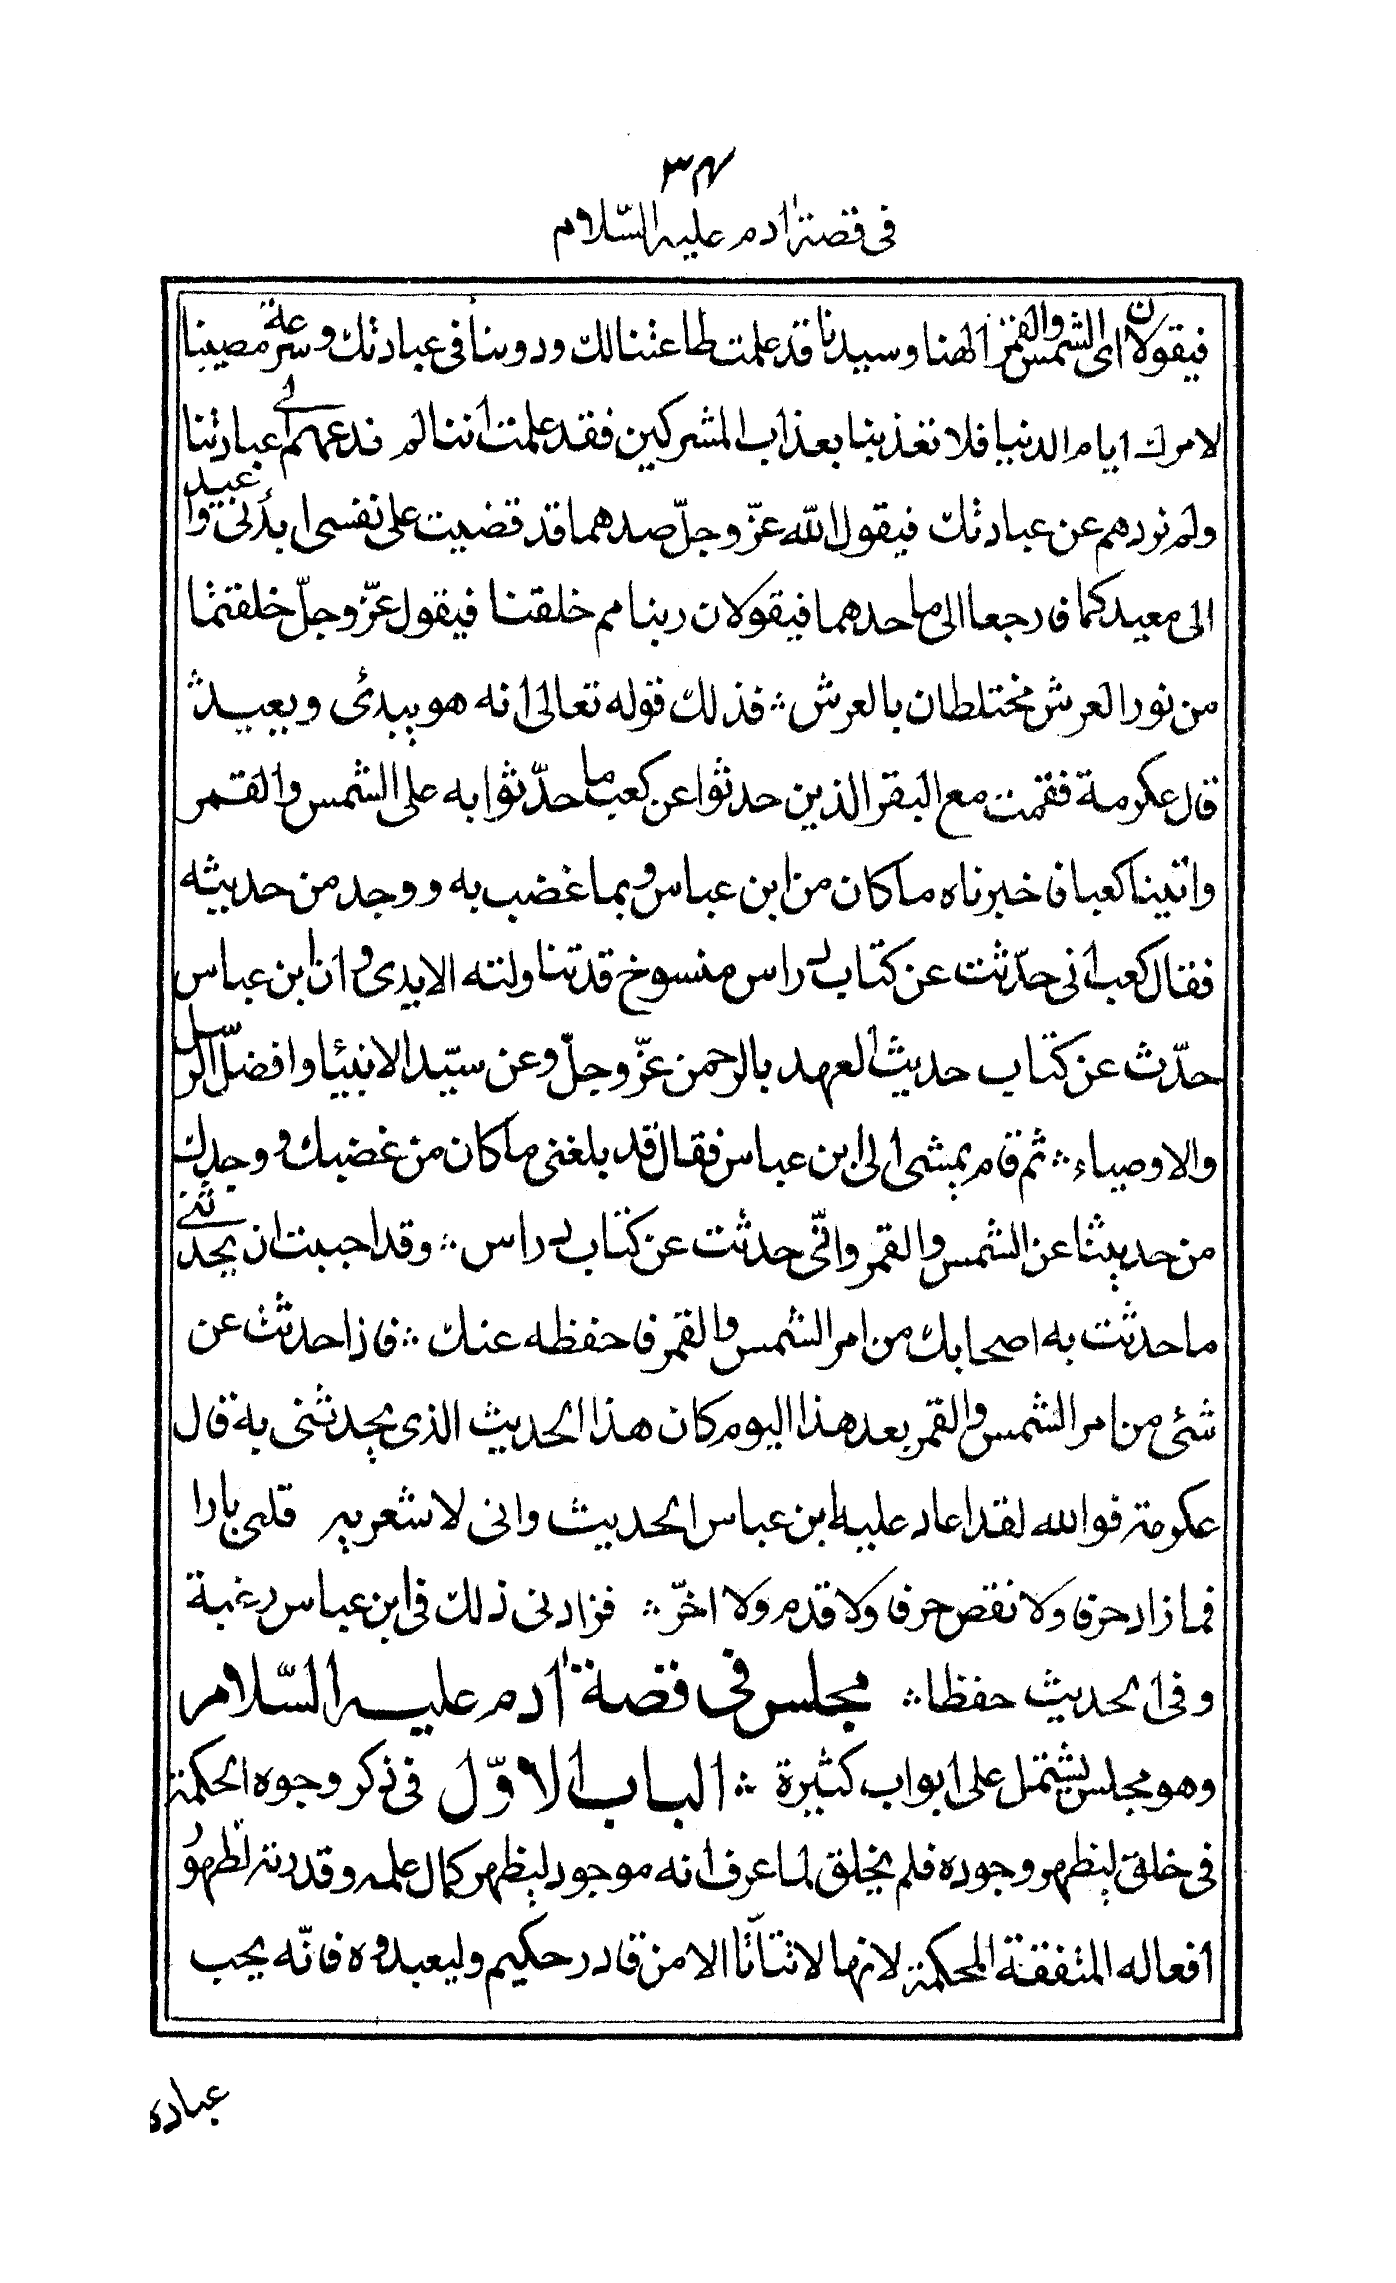 ٣٤
فى قصة اٰدم عليه السّلام
فيقولان اى الشمس والقمر الهنا وسيدنا قد علمت طاعتنا لك ودوبنا فى عبادتك وسرعة مضينا
لامرك ايام الدنيا فلا تعذبنا بعذاب المشركين فقد علمت اننا لم ندعهم الى عبادتنا
ولم نردهم عن عبادتك فيقول الله عزّ وجلّ صدهما قد قضيت على نفسى ابدئ واعيد
الى معيد كما فارجعا الى ما احدهما فيقولان ربنا مم خلقتنا فيقول عزّ وجلّ خلقتما
من نور العرش مختلطان بالعرش ؞ فذلك قوله تعالى انه هو يبدئ ويعيد ؞
قال عكرمة فقمت مع البقر الذين حدثوا عن كعب ما حدّثوا به على الشمس والقمر
واتينا كعبا فاخبرناه ما كان من ابن عباس وبما غضب به ووجد من حديثه
فقال كعب انى حدّثت عن كتاب دراس منسوخ قد تناولته الايدى وان ابن عباس
حدّث عن كتاب حديث العهد بالرحمن عزّ وجلّ وعن سيّد الانبيا وافضل الرّسل
والاوصياء ؞ ثم قام يمشى الى ابن عباس فقال قد بلغنى ما كان من غضبك ووجدك
من حديثنا عن الشمس والقمر وانّى حدثت عن كتاب دراس ؞ وقد احببت ان يحدثنى
ما حدثت به اصحابك من امر الشمس والقمر فاحفظه عنك ؞ فاذا حدثت عن
شئ من امر الشمس والقمر بعد هذا اليوم كان هذا الحديث الذى يحدثنى به قال
عكرمة فوالله لقد اعاد عليه ابن عباس الحديث وانى لاشعر به قلبى بارا
فما زاد حرفا ولا نقص حرفا ولا قدم ولا اخّر ؞ فزادنى ذلك فى ابن عباس رغبة
وفى الحديث حفظا ؞ مجلس فى قصة اٰدم عليه السّلام
وهو مجلس يشتمل على ابواب كثيرة ؞ الباب الاوّل فى ذكر وجوه الحكمة
فى خلق ليظهر وجوده فلم يخلق لما عرف انه موجود ليظهر كمال علمه وقدرته لظهور
افعاله المتفقنة المحكمة لانها لاتتاتا الا من قادر حكيم وليعبدوه فانّه يحب
عباده